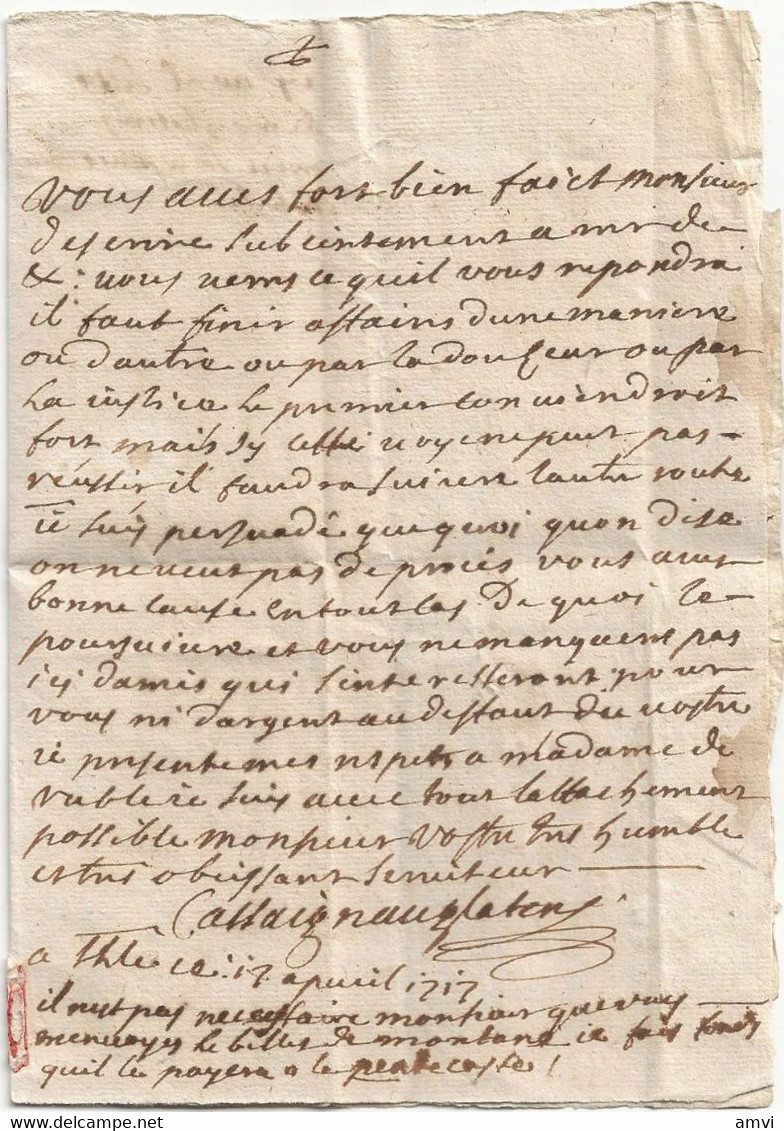 vous aues fort bien faict monsieur
descrire sub et a mr de
&: vous verres ce quil vous repondra
il faut finir affaires dune maniere
ou dautre ou par la douceur ou par
La justice le premier conuiendroit
fort mais sy cette voye ne peut pas
reussir il faudra suivre lautre route
ie suis persuadé que quoi quon dise
on ne veut pas de procés vous aues
bonne cause en tout cas de quoi le
poursuiure et vous ne manqueres pas
ici damis qui sinteresseront pour
vous ni dargent au deffaut du vostre
ie presente mes respets a madame de
ie suis auec tout lattachement
possible monsieur vostre tres humble
et tres obeissant seruiteur
a Thle ce: 17 apuril 1717
il nest pas necessaire monsieur que vous
menuoyes le billet de montane ie fais fonds
quil le payera a la pentecoste!
amvi